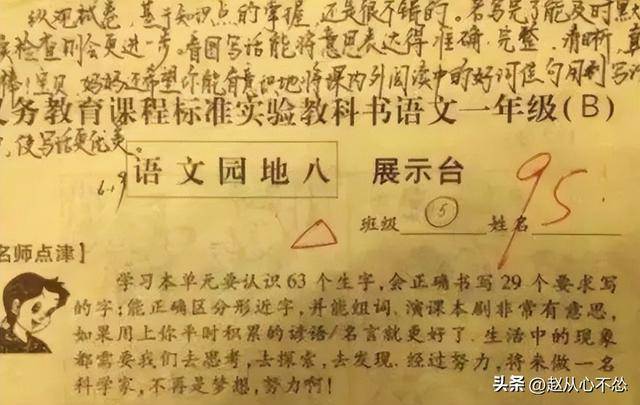 纵观试卷,基于知识点的掌握,还是很不错的。若写完了能及时默
检查则会更进一步。看图写话能将意思表达得准确、完整、清晰,真
棒!宝贝,妈妈还希望你能有意识地将课内外阅读中的好词佳句用到写话
义务教育课程标准实验教科书语文一年级(B)
,使写话更优美。
6.19
语文园地八 展示台
95
班级 ⑤ 姓名
名师点津】
学习本单元要认识63个生字,会正确书写29个要求写
的字;能正确区分形近字,并能组词、演课本剧非常有意思,
如果用上你平时积累的谚语/名言就更好了。生活中的现象
都需要我们去思考,去探索,去发现。经过努力,将来做一名
科学家,不再是梦想,努力啊!
头条 @赵从心不怂